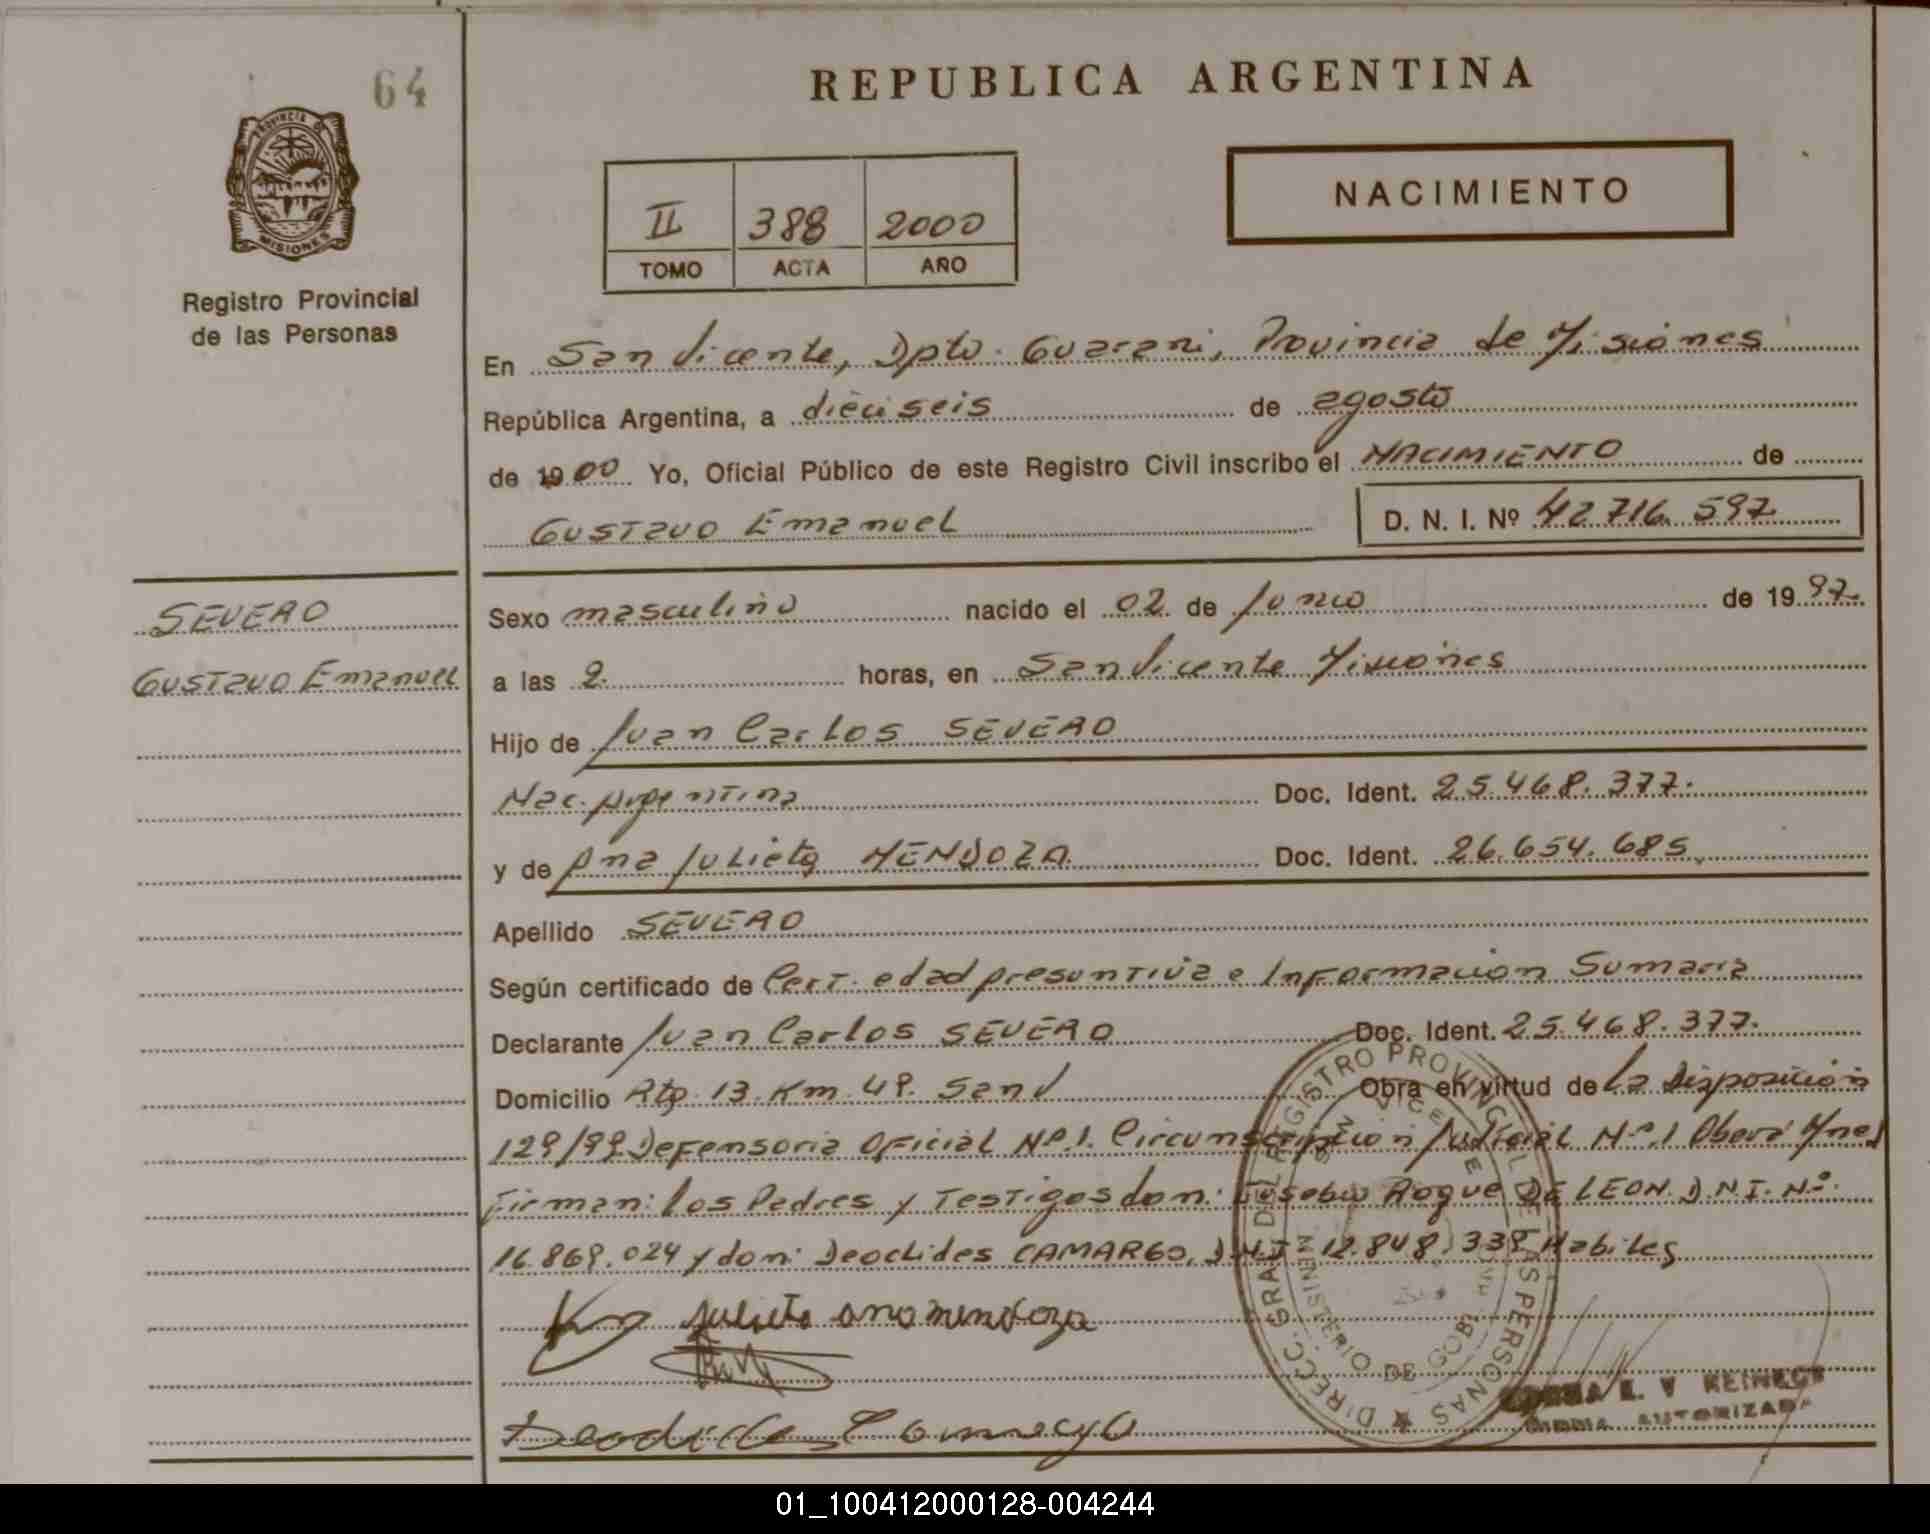 64
REPUBLICA ARGENTINA
PROVINCIA DE
MISIONES
Registro Provincial
de las Personas
NACIMIENTO
II 388 2000
TOMO ACTA AÑO
En San Vicente, Dpto. Guarani, Provincia de Misiones
República Argentina, a dieciseis de agosto
de 1900 Yo, Oficial Público de este Registro Civil inscribo el NACIMIENTO de
Gustavo Emanuel D. N. I. Nº 42.716.597
SEVERO
Gustavo Emanuel
Sexo masculino nacido el 02 de Junio de 1997.
a las 2. horas, en San Vicente Misiones
Hijo de Juan Carlos SEVERO
Nac. Argentina Doc. Ident. 25.468.377.
y de Ana Julieta MENDOZA Doc. Ident. 26.654.685.
Apellido SEVERO
Según certificado de Cert. edad presuntiva e Informacion Sumaria
Declarante Juan Carlos SEVERO Doc. Ident. 25.468.377.
Domicilio Rta. 13. Km. 49. San V Obra en virtud de la Disposición
129/99 Defensoria Oficial Nº.1. Circunscripcion Judicial Nº.1 Oberá Mnes
Firman: los Padres y Testigos don: Eusebio Roque DE LEON. D.N.I. Nº.
16.869.024 y don: Deoclides CAMARGO, D.N.I 12.848.339 Habiles
Julieta ana mendoza
DIRECC. GRAL. DEL REGISTRO PROVINCIAL DE LAS PERSONAS
SAN VICENTE
MINISTERIO DE GOB.
E. V REINECK
FIRMA AUTORIZADA
01_100412000128-004244